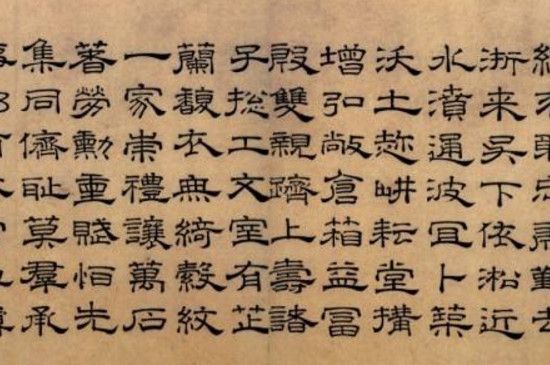 浙来吴下依淞近
水濆通波冝卜築
沃土趂畊耘堂搆
增弘敞倉箱益冨
殷雙親躋上壽諸
子捴工文室有芷
蘭馥衣無綺縠紋
一家崇禮讓萬石
著勞勳重賦恒先
集同儕恥莫羣承